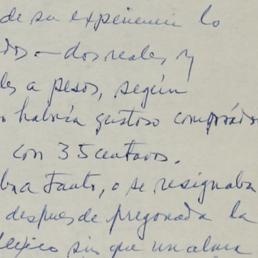 de su experiencia lo
dos — dos reales y
les a pesos, según
o habría gustoso comprádo
con 35 centavos.
bra tanto, o se resignaba
después de pregonada la
sin que un alma